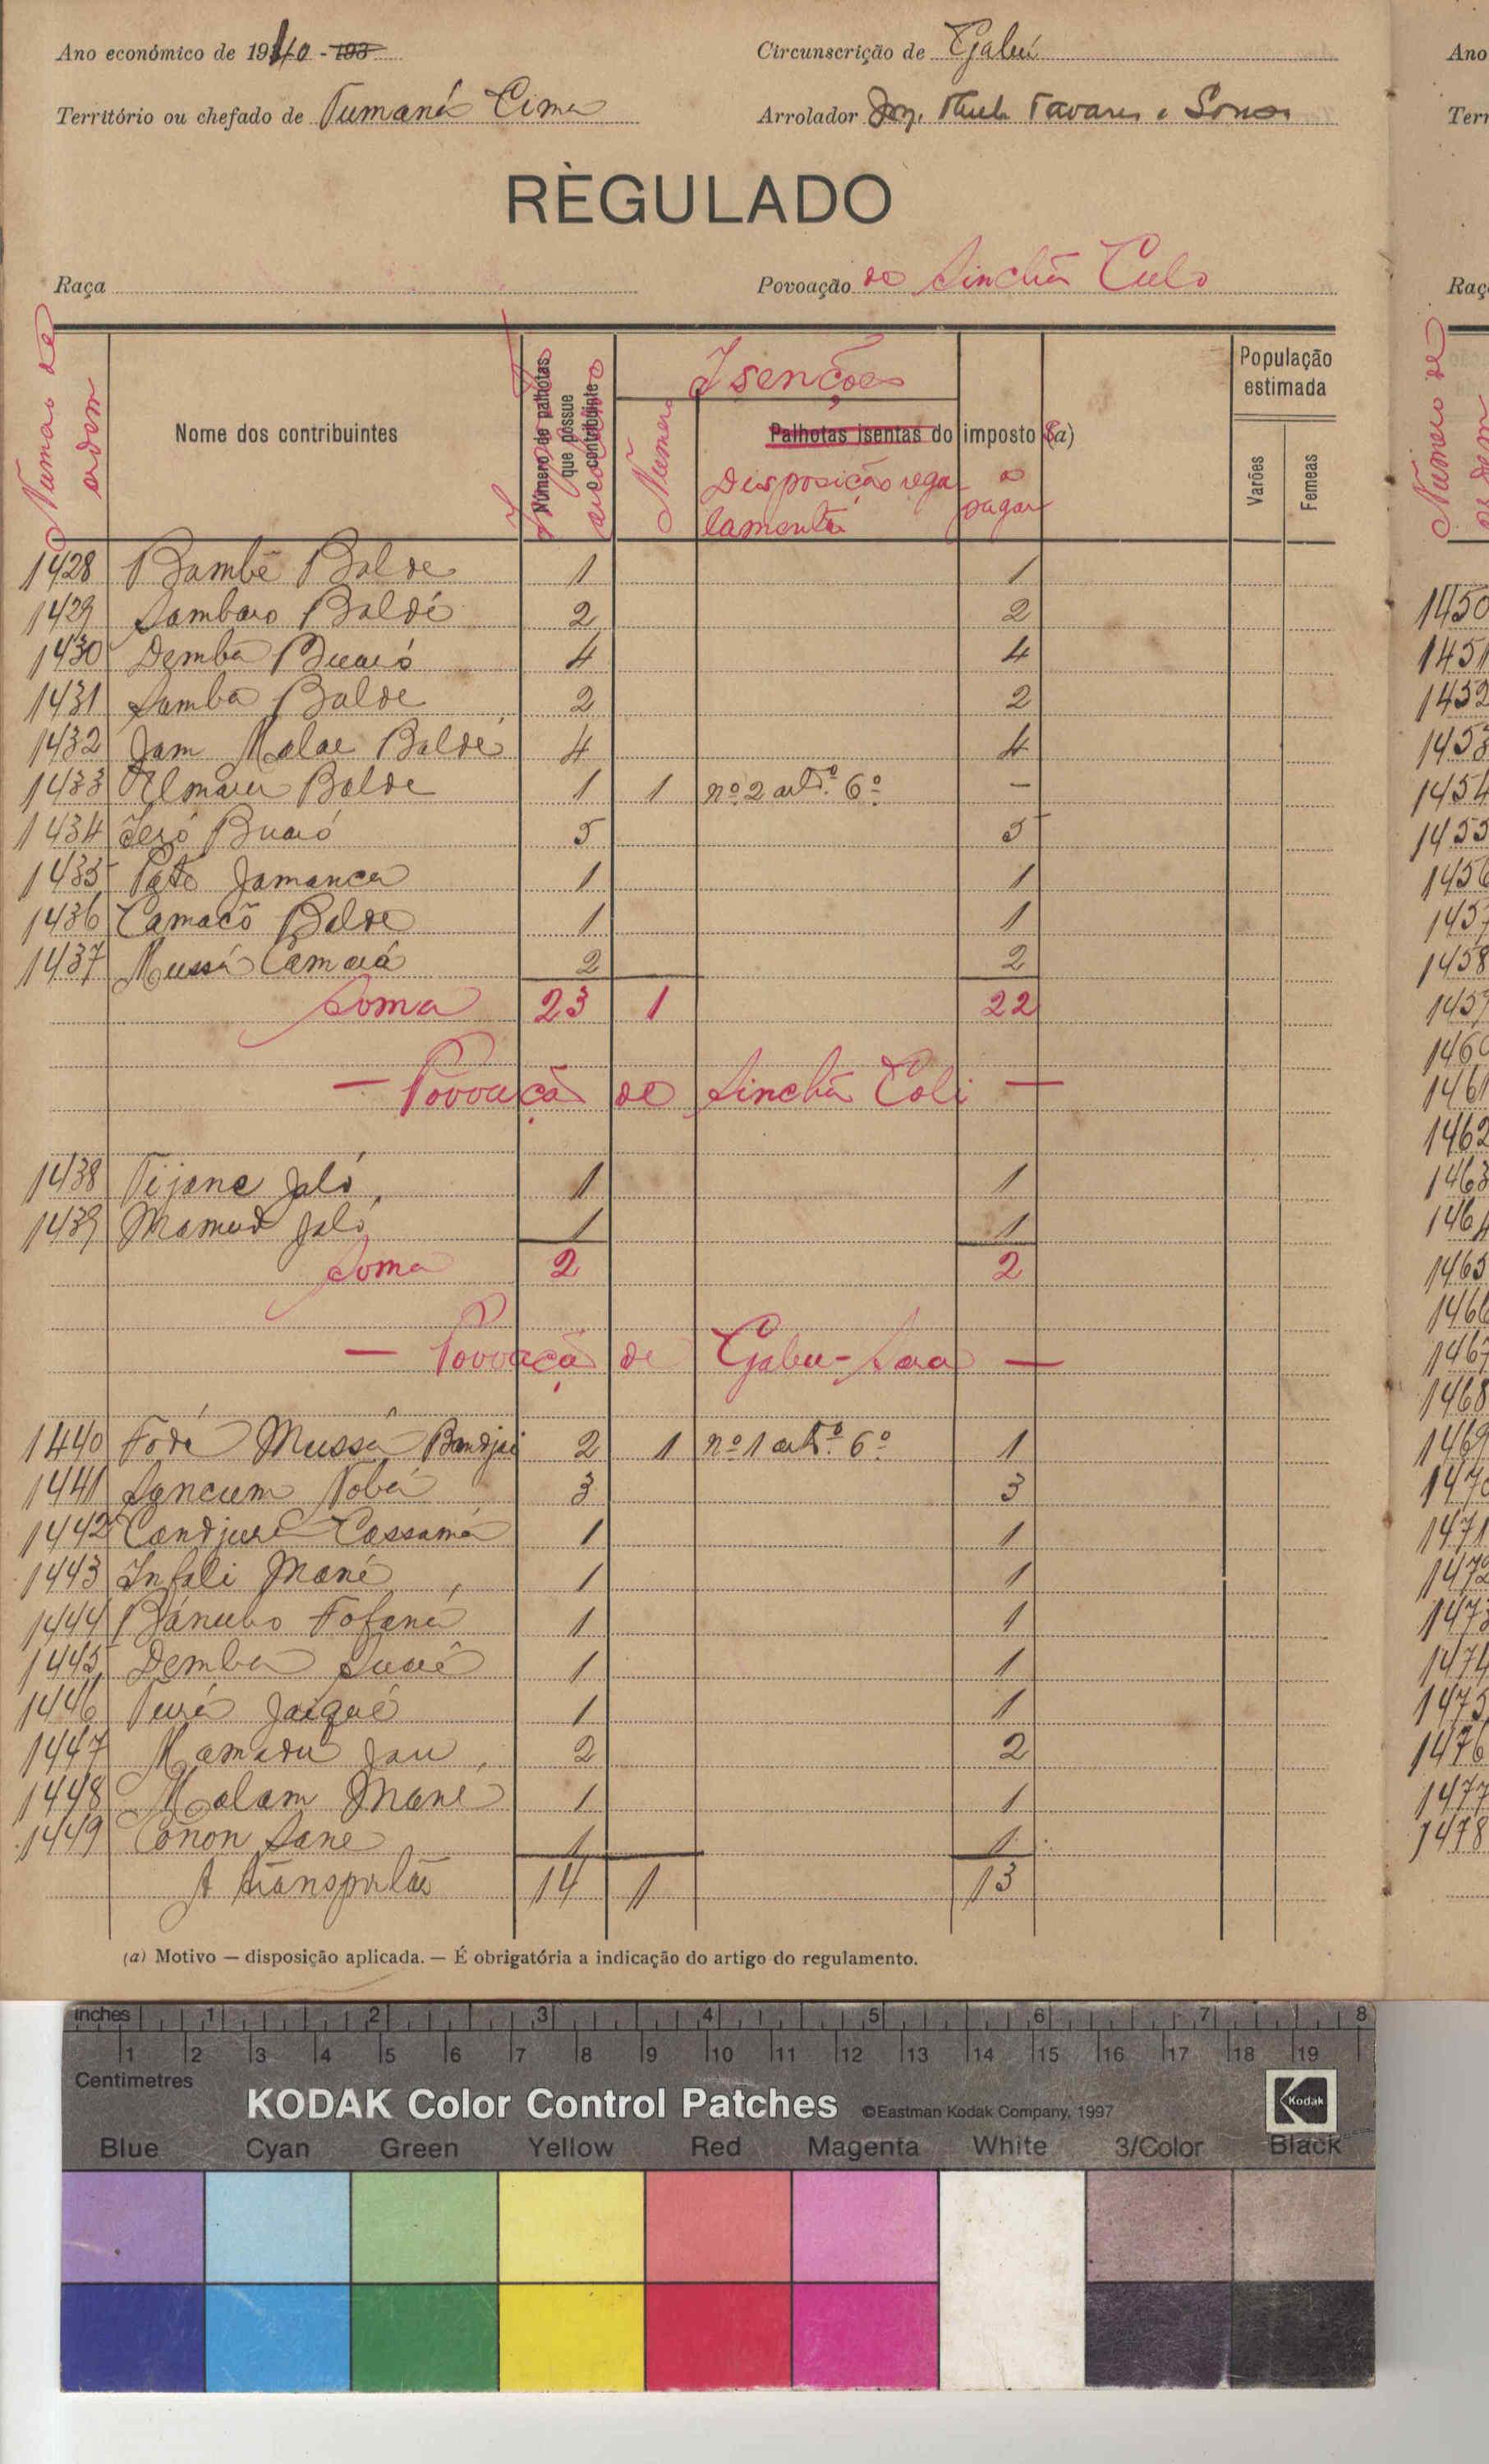 Ano económico de 1940 - 193
Circunscrição de Gabú
Território ou chefado de Tumaná Cima
Arrolador Tavares e Sousa
RÈGULADO
Raça
Povoação de Sinchã Culo
Numero de ordem
Nome dos contribuintes
Número de palhotas que possue o contribuinte
Isenções
Numero
Palhotas isentas do imposto (a)
Disposição regulamentar
a pagar
População estimada
Varões
Femeas
1428 Bambé Balde 1 1
1429 Sambaro Baldé 2 2
1430 Demba Buaró 4 4
1431 Samba Balde 2 2
1432 Jam Malae Baldé 4 4
1433 Balde 1 1 nº 2 artº 6º —
1434 Buaró 5 5
1435 Pató Jamanca 1 1
1436 Camacô Balde 1 1
1437 Mussá Camará 2 2
Soma 23 1 22
— Povoação de Sinchã Coli —
1438 Tijane Jaló 1 1
1439 Mamud Jaló 1 1
Soma 2 2
— Povoação de Gabu-Sara —
1440 Fodé Mussá Bandjai 2 1 nº 1 artº 6º 1
1441 Sancum Tobá 3 3
1442 Candjura Cassamá 1 1
1443 Infali Mané 1 1
1444 Bánubo Fofaná 1 1
1445 Demba Suaré 1 1
1446 Turé Jaiqué 1 1
1447 Mamadu Jau 2 2
1448 Malam Mané 1 1
1449 Conon Sane 1 1
A transportar 14 1 13
(a) Motivo — disposição aplicada. — É obrigatória a indicação do artigo do regulamento.
Ano
Terr
Raç
Número de
1450
1451
1452
1453
1454
1455
1456
1457
1458
1459
1460
1461
1462
1463
1464
1465
1466
1467
1468
1469
1470
1471
1472
1473
1474
1475
1476
1477
1478
inches 1 2 3 4 5 6 7 8
1 2 3 4 5 6 7 8 9 10 11 12 13 14 15 16 17 18 19
Centimetres
KODAK Color Control Patches ©Eastman Kodak Company, 1997 Kodak
Blue Cyan Green Yellow Red Magenta White 3/Color Black